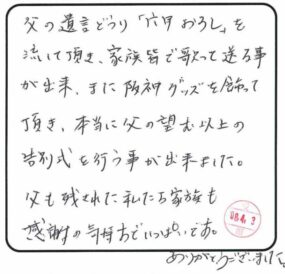 父の遺言どうり「六甲おろし」を
流して頂き、家族皆で歌って送る事
が出来、また阪神グッズを飾って
頂き、本当に父の望む以上の
告別式を行う事が出来ました。
父も残された私たち家族も
感謝の気持ちでいっぱいです。
ありがとうございました。